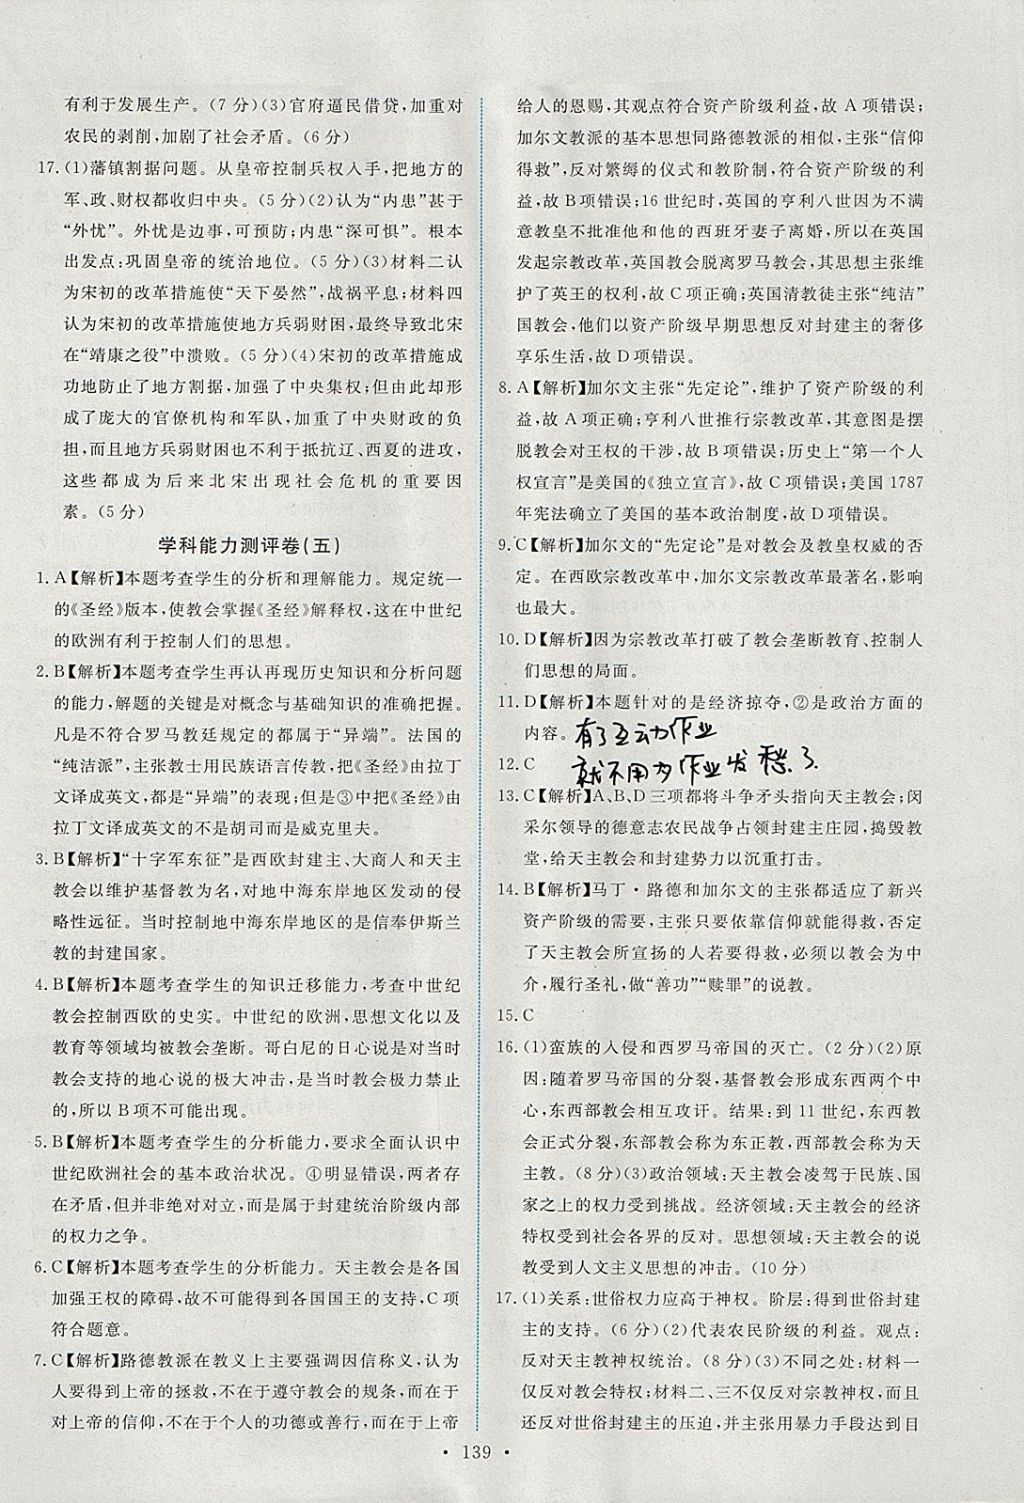 有利于发展生产。(7分)(3)官府逼民借贷，加重对
农民的剥削，加剧了社会矛盾。(6分)
17.(1)藩镇割据问题。从皇帝控制兵权入手，把地方的
军、政、财权都收归中央。(5分)(2)认为“内患”甚于
“外忧”。外忧是边事，可预防；内患“深可惧”。根本
出发点：巩固皇帝的统治地位。(5分)(3)材料二认
为宋初的改革措施使“天下晏然”，战祸平息；材料四
认为宋初的改革措施使地方兵弱财困，最终导致北宋
在“靖康之役”中溃败。(5分)(4)宋初的改革措施成
功地防止了地方割据，加强了中央集权；但由此却形
成了庞大的官僚机构和军队，加重了中央财政的负
担，而且地方兵弱财困也不利于抵抗辽、西夏的进攻，
这些都成为后来北宋出现社会危机的重要因
素。(5分)
学科能力测评卷(五)
1. A【解析】本题考查学生的分析和理解能力。规定统一
的《圣经》版本，使教会掌握《圣经》解释权，这在中世纪
的欧洲有利于控制人们的思想。
2. B【解析】本题考查学生再认再现历史知识和分析问题
的能力，解题的关键是对概念与基础知识的准确把握。
凡是不符合罗马教廷规定的都属于“异端”。法国的
“纯洁派”，主张教士用民族语言传教，把《圣经》由拉丁
文译成英文，都是“异端”的表现；但是③中把《圣经》由
拉丁文译成英文的不是胡司而是威克里夫。
3. B【解析】“十字军东征”是西欧封建主、大商人和天主
教会以维护基督教为名，对地中海东岸地区发动的侵
略性远征。当时控制地中海东岸地区的是信奉伊斯兰
教的封建国家。
4. B【解析】本题考查学生的知识迁移能力，考查中世纪
教会控制西欧的史实。中世纪的欧洲，思想文化以及
教育等领域均被教会垄断。哥白尼的日心说是对当时
教会支持的地心说的极大冲击，是当时教会极力禁止
的，所以B项不可能出现。
5. B【解析】本题考查学生的分析能力，要求全面认识中
世纪欧洲社会的基本政治状况。④明显错误，两者存
在矛盾，但并非绝对对立，而是属于封建统治阶级内部
的权力之争。
6. C【解析】本题考查学生的分析能力。天主教会是各国
加强王权的障碍，故不可能得到各国国王的支持，C项
符合题意。
7. C【解析】路德教派在教义上主要强调因信称义，认为
人要得到上帝的拯救，不在于遵守教会的规条，而在于
对上帝的信仰，不在于个人的功德或善行，而在于上帝
给人的恩赐，其观点符合资产阶级利益，故A项错误；
加尔文教派的基本思想同路德教派的相似，主张“信仰
得救”，反对繁缛的仪式和教阶制，符合资产阶级的利
益，故B项错误；16世纪时，英国的亨利八世因为不满
意教皇不批准他和他的西班牙妻子离婚，所以在英国
发起宗教改革，英国教会脱离罗马教会，其思想主张维
护了英王的权利，故C项正确；英国清教徒主张“纯洁”
国教会，他们以资产阶级早期思想反对封建主的奢侈
享乐生活，故D项错误。
8. A【解析】加尔文主张“先定论”，维护了资产阶级的利
益，故A项正确；亨利八世推行宗教改革，其意图是摆
脱教会对王权的干涉，故B项错误；历史上“第一个人
权宣言”是美国的《独立宣言》，故C项错误；美国1787
年宪法确立了美国的基本政治制度，故D项错误。
9. C【解析】加尔文的“先定论”是对教会及教皇权威的否
定。在西欧宗教改革中，加尔文宗教改革最著名，影响
也最大。
10. D【解析】因为宗教改革打破了教会垄断教育、控制人
们思想的局面。
11. D【解析】本题针对的是经济掠夺，②是政治方面的
内容。
有了互动作业
12. C
就不用为作业发愁了.
13. C【解析】A、B、D三项都将斗争矛头指向天主教会；闵
采尔领导的德意志农民战争占领封建主庄园，捣毁教
堂，给天主教会和封建势力以沉重打击。
14. B【解析】马丁·路德和加尔文的主张都适应了新兴
资产阶级的需要，主张只要依靠信仰就能得救，否定
了天主教会所宣扬的人若要得救，必须以教会为中
介，履行圣礼，做“善功”“赎罪”的说教。
15. C
16.(1)蛮族的入侵和西罗马帝国的灭亡。(2分)(2)原
因：随着罗马帝国的分裂，基督教会形成东西两个中
心，东西部教会相互攻讦。结果：到11世纪，东西教
会正式分裂，东部教会称为东正教，西部教会称为天
主教。(8分)(3)政治领域：天主教会凌驾于民族、国
家之上的权力受到挑战。经济领域：天主教会的经济
特权受到社会各界的反对。思想领域：天主教会的说
教受到人文主义思想的冲击。(10分)
17.(1)关系：世俗权力应高于神权。阶层：得到世俗封建
主的支持。(6分)(2)代表农民阶级的利益。观点：
反对天主教神权统治。(8分)(3)不同之处：材料一
仅反对教会特权；材料二、三不仅反对宗教神权，而且
还反对世俗封建主的压迫，并主张用暴力手段达到目
• 139 •